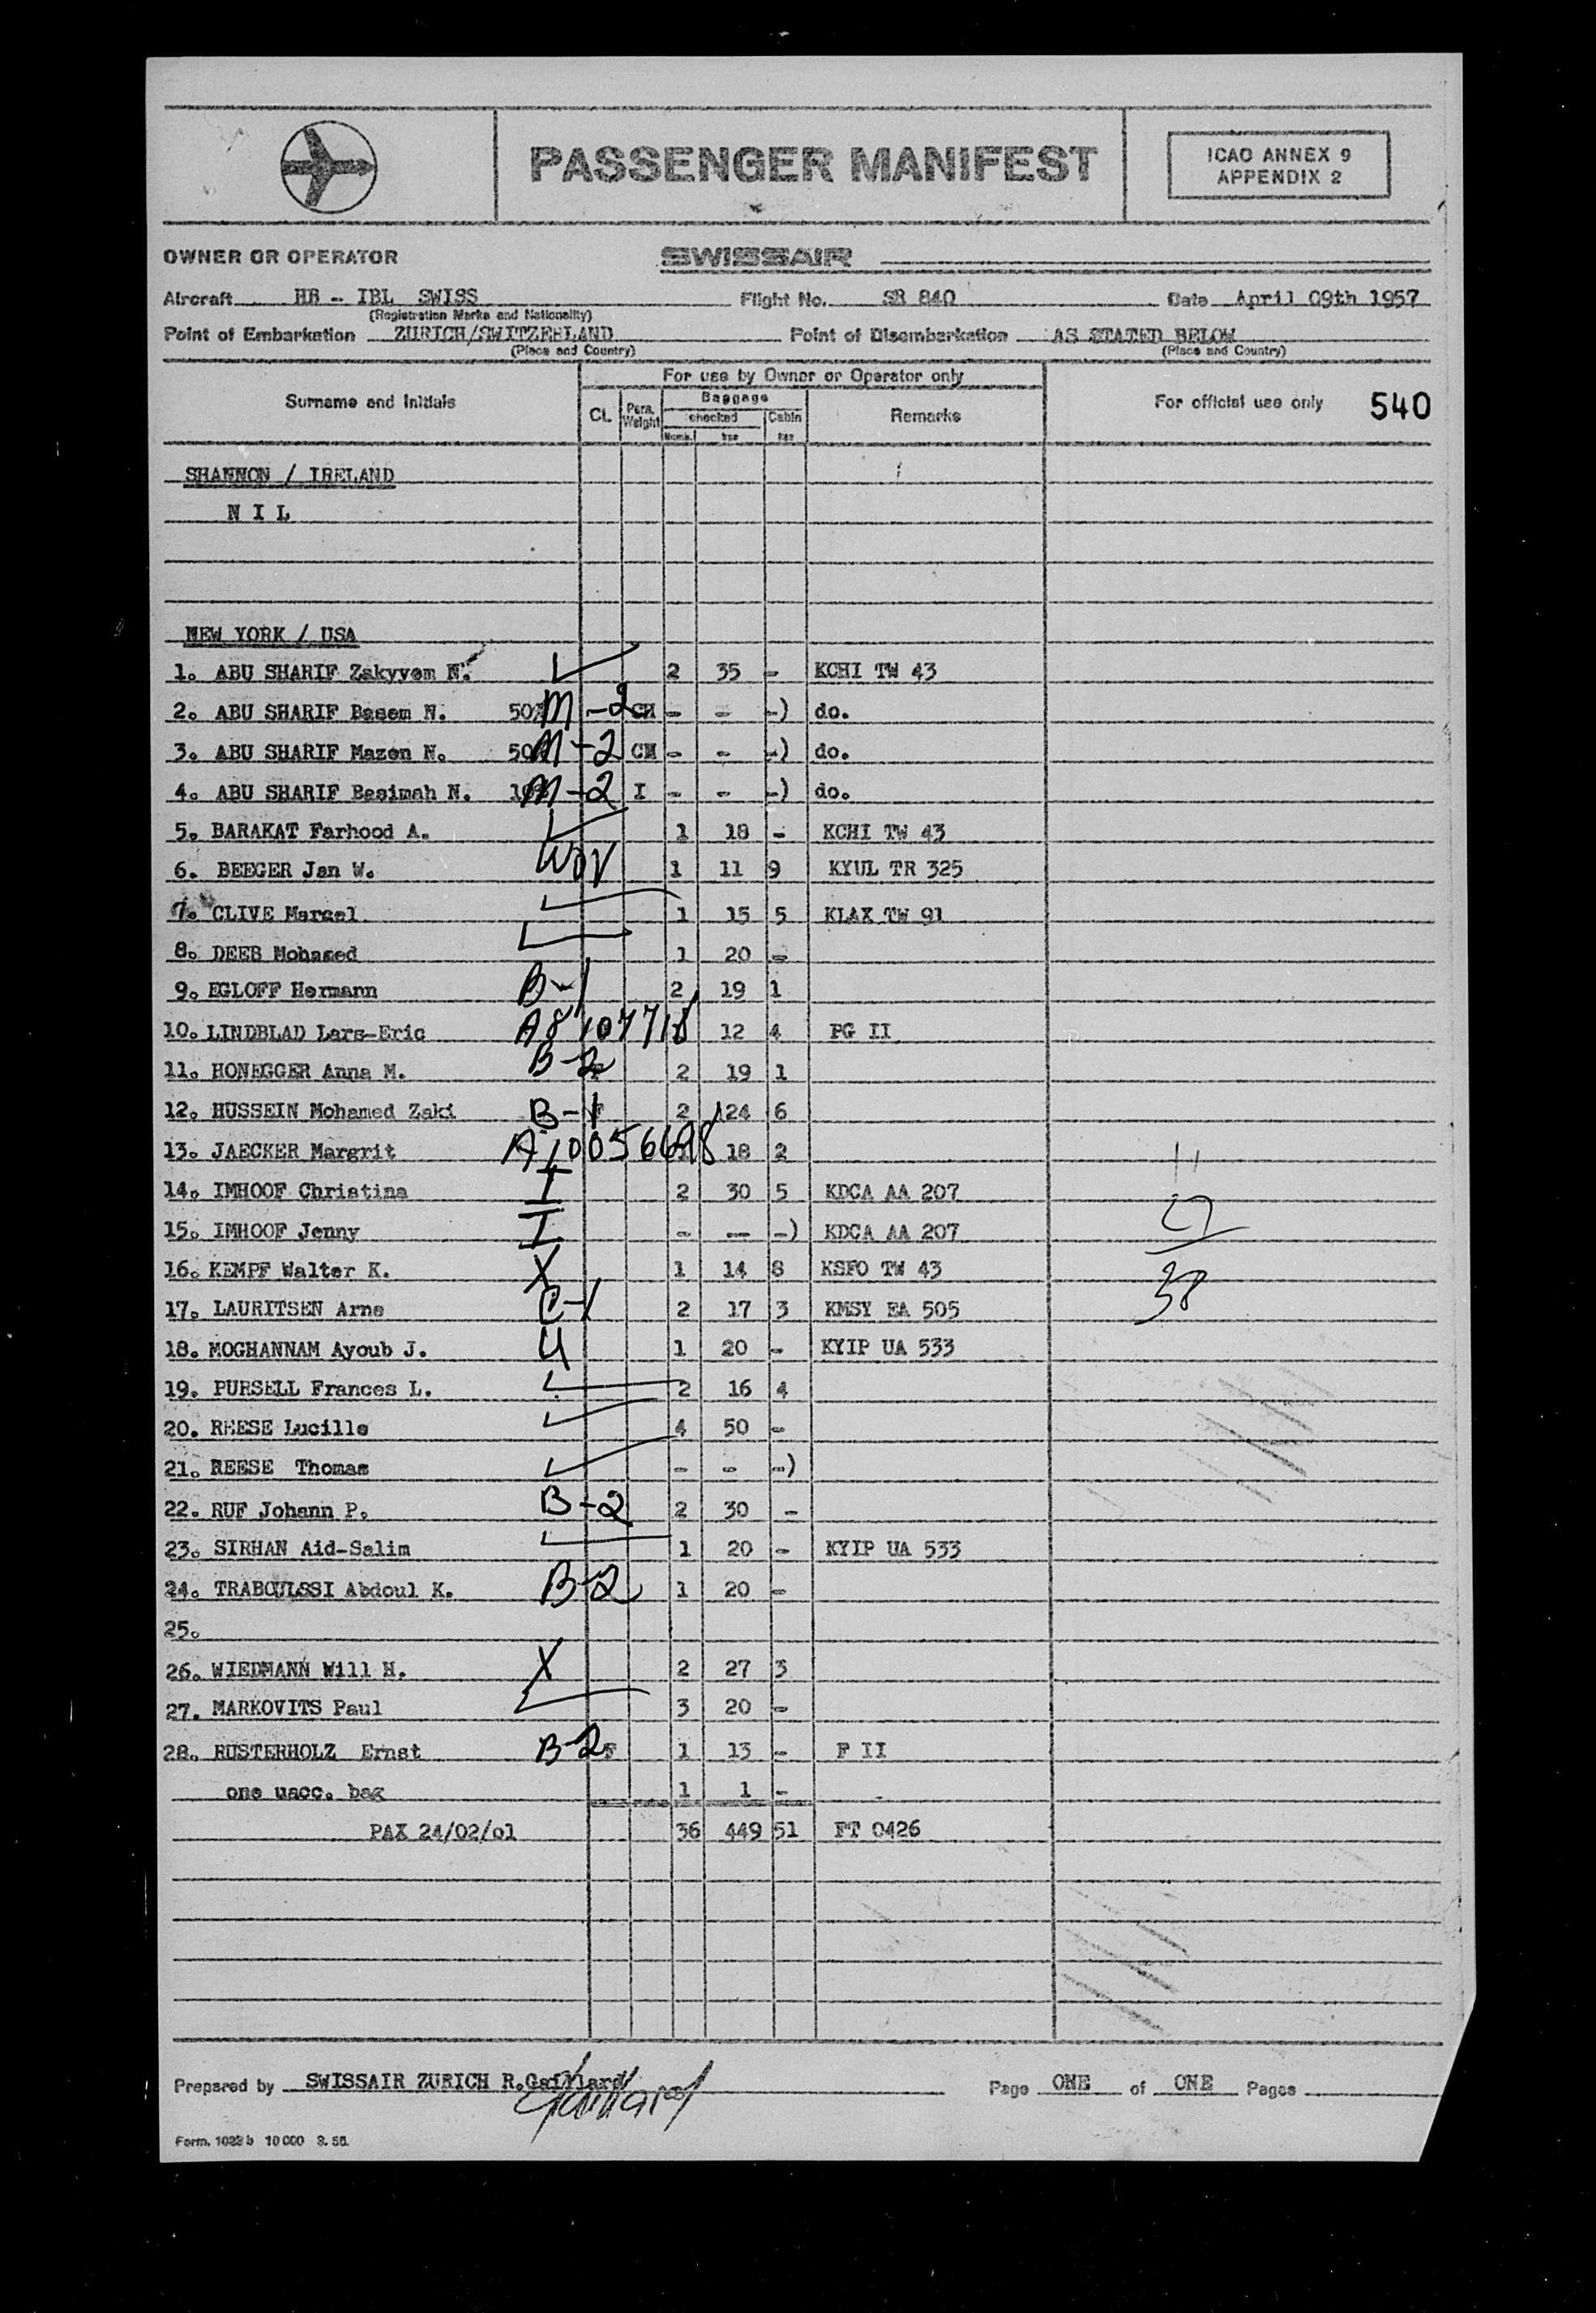 PASSENGER MANIFEST
ICAO ANNEX 9
APPENDIX 2
OWNER OR OPERATOR SWISSAIR
Aircraft HB - IBL SWISS Flight No. SR 840 Date April 09th 1957
(Registration Marks and Nationality)
Point of Embarkation ZURICH/SWITZERLAND Point of Disembarkation AS STATED BELOW
(Place and Country) (Place and Country)
For use by Owner or Operator only
Surname and Initials Cl. Pers. Weight Baggage checked Cabin Remarks For official use only 540
Numb. kgs kgs
SHANNON / IRELAND
N I L
NEW YORK / USA
1. ABU SHARIF Zakyyem N. 2 35 - KCHI TW 43
2. ABU SHARIF Basem N. 50% M-2 CH - - -) do.
3. ABU SHARIF Mazen N. 50% M-2 CH - - -) do.
4. ABU SHARIF Basimah N. 10% M-2 I - - -) do.
5. BARAKAT Farhood A. 1 18 - KCHI TW 43
6. BEEGER Jan W. 1 11 9 KYUL TR 325
7. CLIVE Marcel 1 15 5 KLAX TW 91
8. DEEB Mohamed 1 20 -
9. EGLOFF Hermann B-1 2 19 1
10. LINDBLAD Lars-Eric A8 107 718 12 4 PG II
11. HONEGGER Anna M. B-2 2 19 1
12. HUSSEIN Mohamed Zaki B-1 F 2 24 6
13. JAECKER Margrit A10056698 18 2
14. IMHOOF Christina I 2 30 5 KDCA AA 207
15. IMHOOF Jenny I - - -) KDCA AA 207
16. KEMPF Walter K. X 1 14 8 KSFO TW 43
17. LAURITSEN Arne C-1 2 17 3 KMSY EA 505
18. MOGHANNAM Ayoub J. 4 1 20 - KYIP UA 533
19. PURSELL Frances L. 2 16 4
20. REESE Lucille 4 50 -
21. REESE Thomas - - -)
22. RUF Johann P. B-2 2 30 -
23. SIRHAN Aid-Salim 1 20 - KYIP UA 533
24. TRABOULSSI Abdoul K. B-2 1 20 -
25.
26. WIEDMANN Will H. X 2 27 3
27. MARKOVITS Paul 3 20 -
28. RUSTERHOLZ Ernst B-2 F 1 13 - F II
one uacc. bag 1 1 -
PAX 24/02/01 36 449 51 FT 0426
11
27
38
Prepared by SWISSAIR ZURICH R.Gaillard Gaillard Page ONE of ONE Pages
Form. 1023 b 10 000 8. 56.